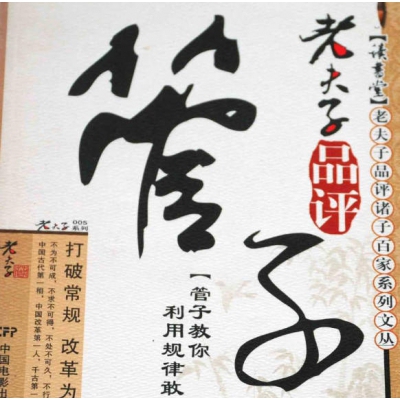 【读书堂】老夫子品评诸子百家系列文丛
老夫子
品评
管子
【管子教你
利用规律敢
老夫子
005
系列
打破常规 改革为
不为不可成，不求不可得，不处不可久，不行
中国古代第一相，中国改革第一人，千古第一
老夫子
CFP
中国电影出